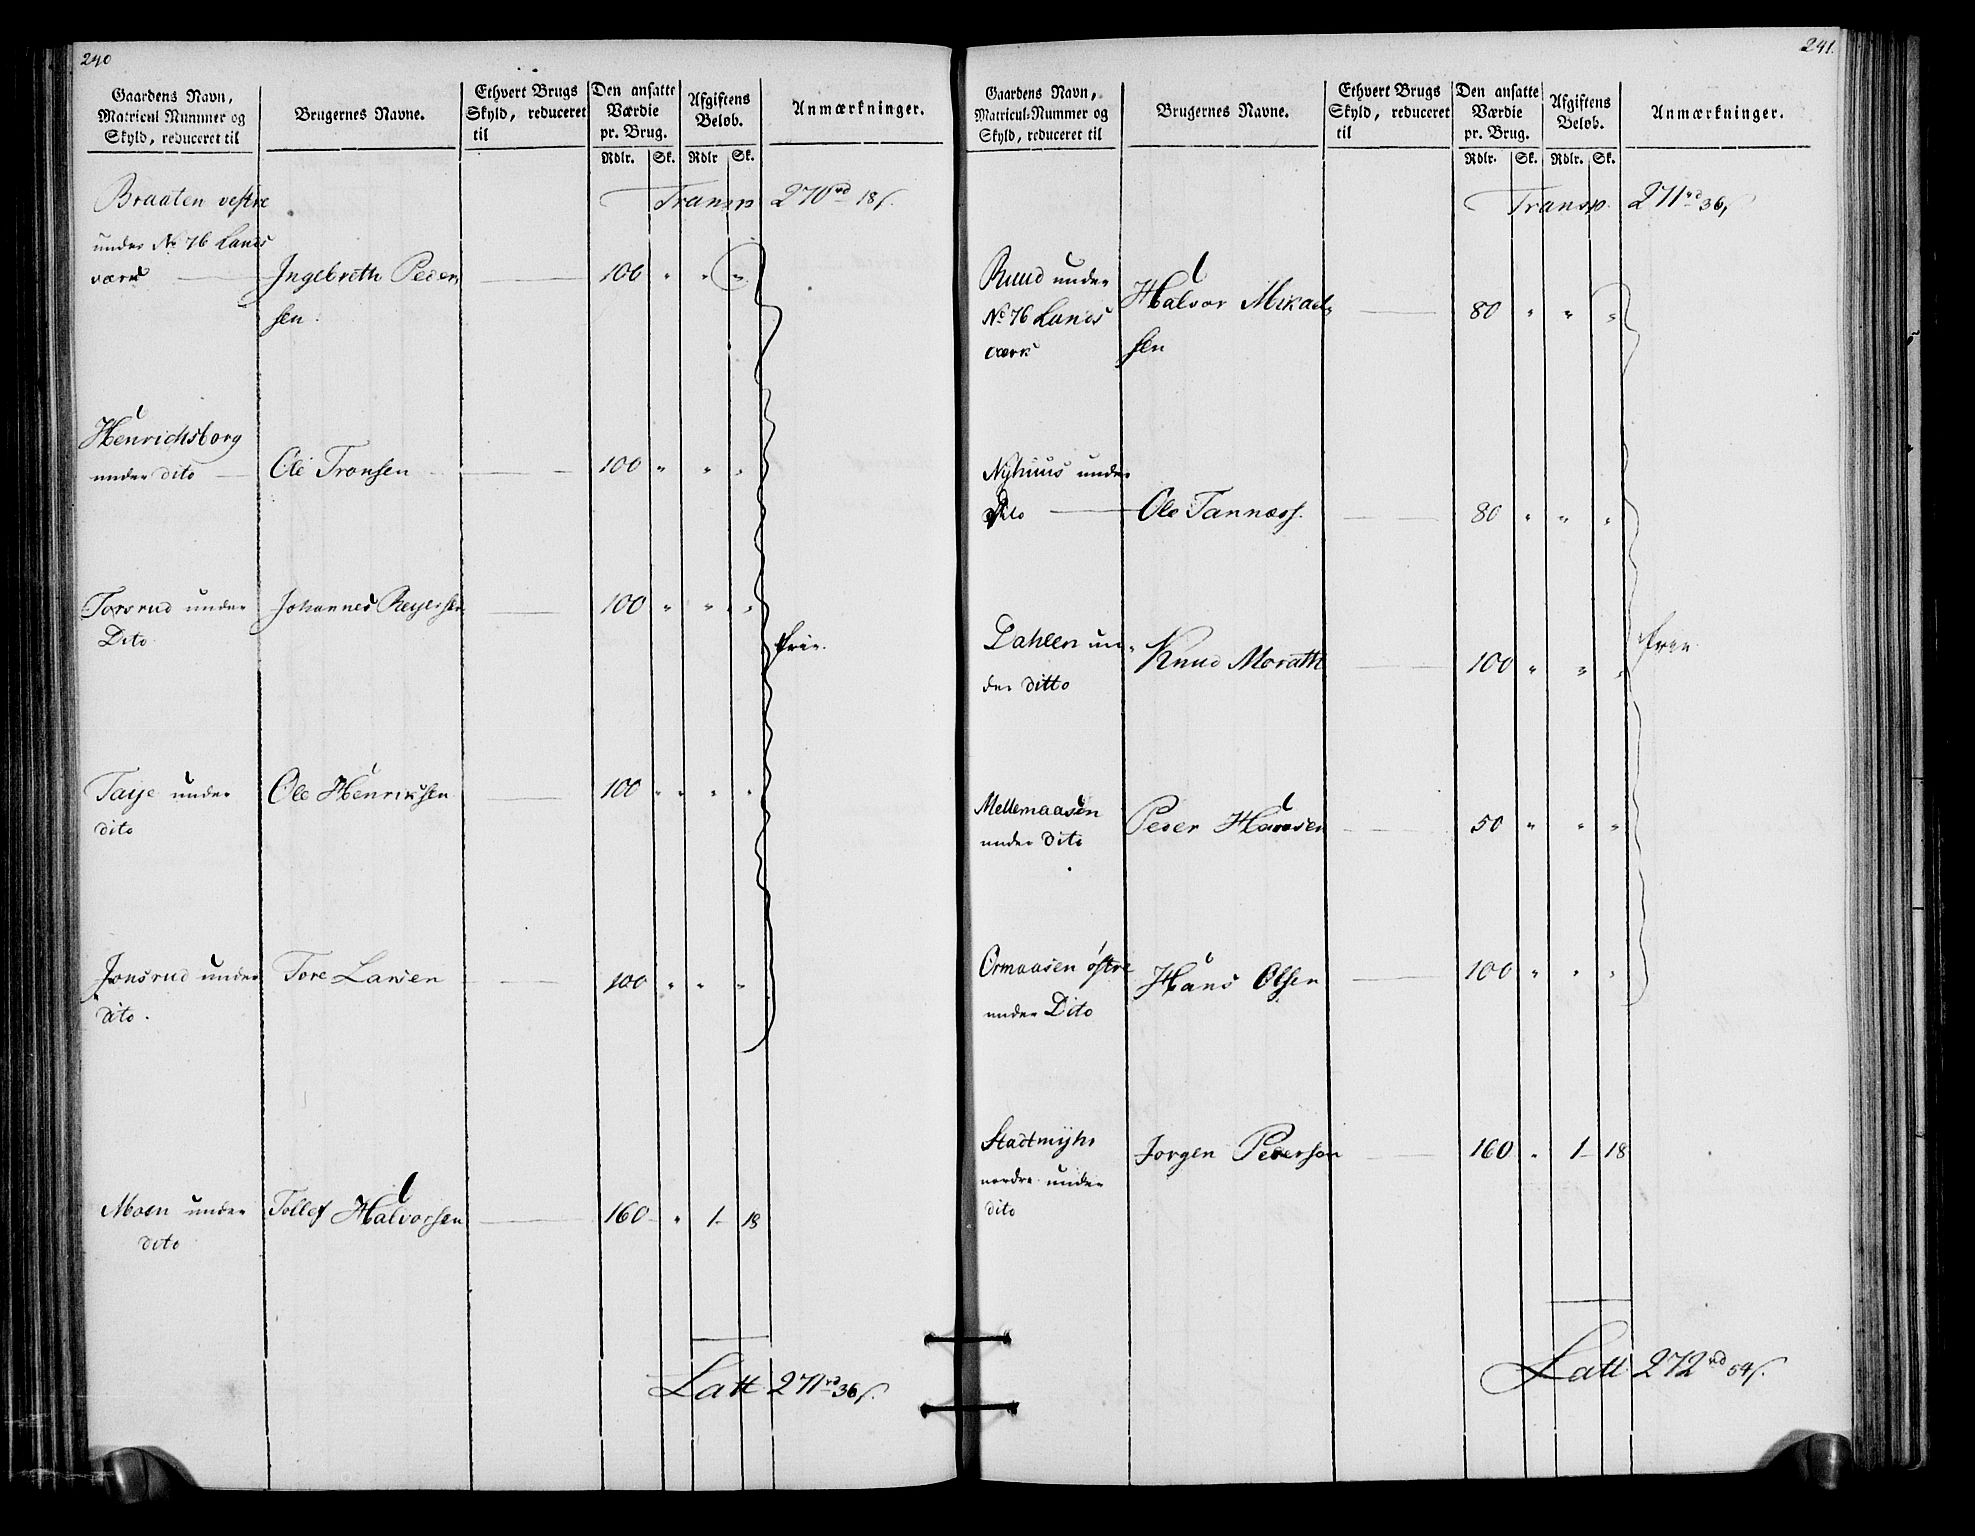 240
Gaardens Navn,
Matricul Nummer og
Skyld, reduceret til
Brugernes Navne.
Ethvert Brugs
Skyld, reduceret
til
Den ansatte
Værdie
pr. Brug.
Rdlr. Sk.
Afgiftens
Beløb.
Rdlr Sk.
Anmærkninger.
Braaten vestre Transp 270rd 18s.
under No 76 Lands
værk Ingebreth Peder 100 " " "
sen.
Henrichsborg
under dito Ole Tronsen 100 " " "
Torsrud under Johannes Reyersen 100 " " "
Dito
frie.
Taije under Ole Henriksen 100 " " "
dito
Jonsrud under Tore Larsen 100 " " "
dito.
Moen under Tollef Halvorsen 160 " 1 18
dito
Latt 271rd 36s.
241.
Gaardens Navn,
Matricul-Nummer og
Skyld, reduceret til
Brugernes Navne.
Ethvert Brugs
Skyld, reduceret
til
Den ansatte
Værdie
pr. Brug.
Rdlr. Sk.
Afgiftens
Beløb.
Rdlr. Sk.
Anmærkninger.
Transp. 271rd 36s
Ruud under
No 76 Lands Halvor Mikael= 80 " " "
værk sen
Nyhuus under
Dito Ole Tannæss. 80 " " "
Dahlen un= Knud Morath 100 " " " frie
der ditto
Mellemaasen Peder Hansen 50 " " "
under dito
Ormaasen østre Hans Olsen 100 " " "
under Dito
Stadtmyhr Jørgen Pedersen 160 " 1 18
nordre under
dito
Latt 272rd 54s.